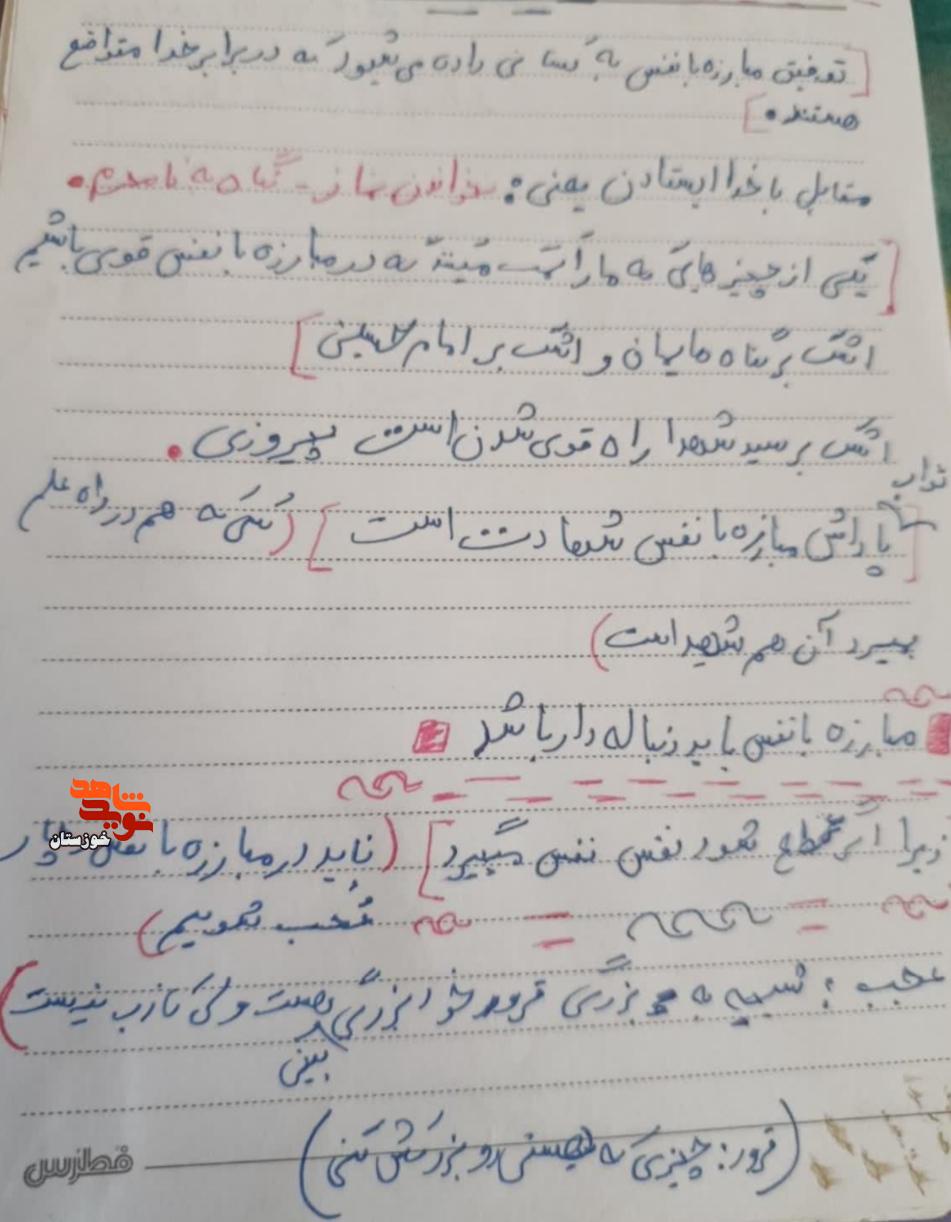 [توفیق مبارزه با نفس به کسانی داده می‌شود که در برابر خدا متواضع
هستند.]
مقابل با خدا ایستادن یعنی: نخواندن نماز - نگاه به نامحرم.
[یکی از چیزهایی که ما را کمک میکند که در مبارزه با نفس قوی باشیم
اشک بر گناهامان و اشک بر امام حسین]
اشک بر سید شهدا راه قوی شدن است پیروزی.
ثواب
[پاداش مبارزه با نفس شهادت است] (کسی که هم در راه علم
بمیرد آن هم شهید است)
مبارزه با نفس باید دنباله دار باشد
زیرا اگر قطع شود نفس نفس میگیرد] (نباید در مبارزه با نفس دچار
عجب شویم)
عجب: شبیه به بزرگی غرور خود بزرگی هست ولی کاذب نیست)
بینی
(غرور: چیزی که نیستی رو بزرگش کنی)
نوید شاهد
خوزستان